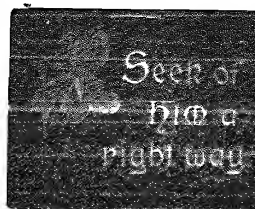 Seek of
him a
right way